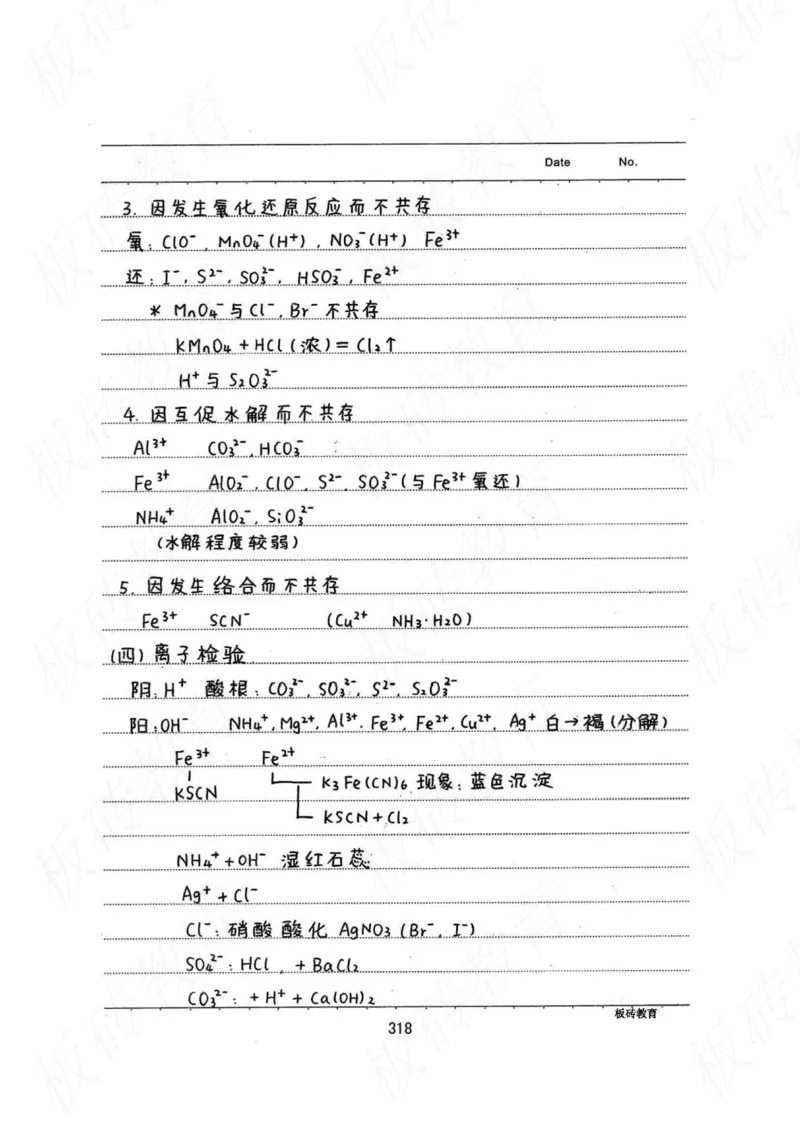 Date No.
3. 因发生氧化还原反应而不共存
氧: ClO⁻, MnO₄⁻(H⁺), NO₃⁻(H⁺) Fe³⁺
还: I⁻, S²⁻, SO₃²⁻, HSO₃⁻, Fe²⁺
* MnO₄⁻与Cl⁻, Br⁻不共存
KMnO₄ + HCl (浓) = Cl₂↑
H⁺与 S₂O₃²⁻
4. 因互促水解而不共存
Al³⁺ CO₃²⁻, HCO₃⁻
Fe³⁺ AlO₂⁻, ClO⁻, S²⁻, SO₃²⁻(与Fe³⁺氧还)
NH₄⁺ AlO₂⁻, SiO₃²⁻
(水解程度较弱)
5. 因发生络合而不共存
Fe³⁺ SCN⁻ (Cu²⁺ NH₃·H₂O)
(四) 离子检验
阴: H⁺ 酸根: CO₃²⁻, SO₃²⁻, S²⁻, S₂O₃²⁻
阳: OH⁻ NH₄⁺, Mg²⁺, Al³⁺, Fe³⁺, Fe²⁺, Cu²⁺, Ag⁺ 白→褐(分解)
Fe³⁺ Fe²⁺
K₃Fe(CN)₆ 现象: 蓝色沉淀
KSCN
KSCN + Cl₂
NH₄⁺ + OH⁻ 湿红石蕊
Ag⁺ + Cl⁻
Cl⁻: 硝酸酸化 AgNO₃ (Br⁻, I⁻)
SO₄²⁻: HCl, + BaCl₂
CO₃²⁻: + H⁺ + Ca(OH)₂
板砖教育
318